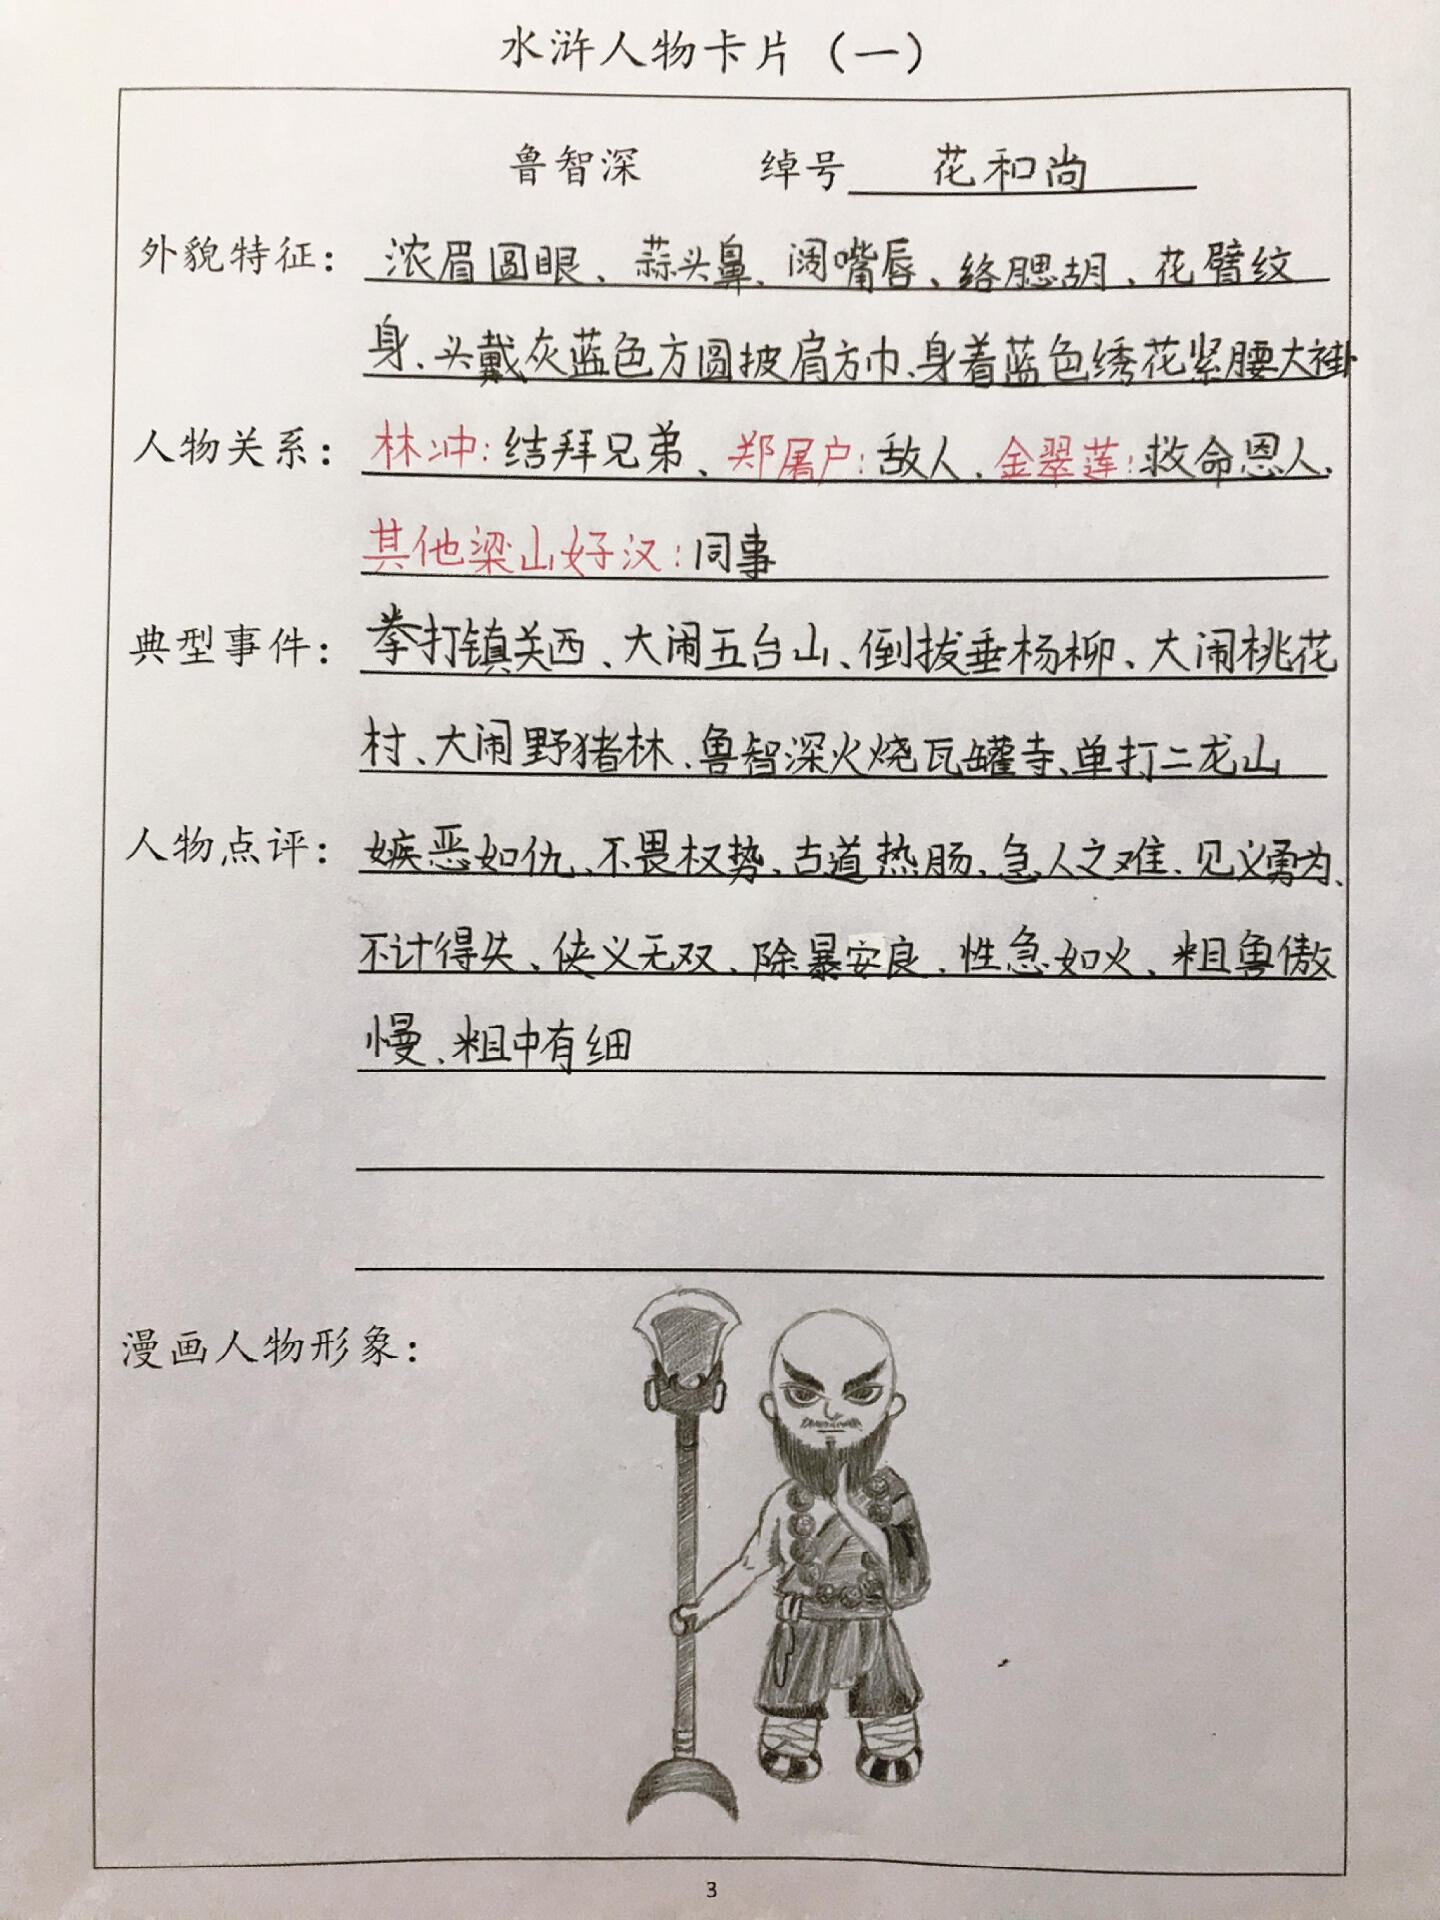 水浒人物卡片（一）
鲁智深 绰号 花和尚
外貌特征：浓眉圆眼、蒜头鼻、阔嘴唇、络腮胡、花臂纹
身、头戴灰蓝色方圆披肩方巾、身着蓝色绣花紧腰大褂
人物关系：林冲：结拜兄弟、郑屠户：敌人、金翠莲：救命恩人、
其他梁山好汉：同事
典型事件：拳打镇关西、大闹五台山、倒拔垂杨柳、大闹桃花
村、大闹野猪林、鲁智深火烧瓦罐寺、单打二龙山
人物点评：嫉恶如仇、不畏权势、古道热肠、急人之难、见义勇为、
不计得失、侠义无双、除暴安良、性急如火、粗鲁傲
慢、粗中有细
漫画人物形象：
3